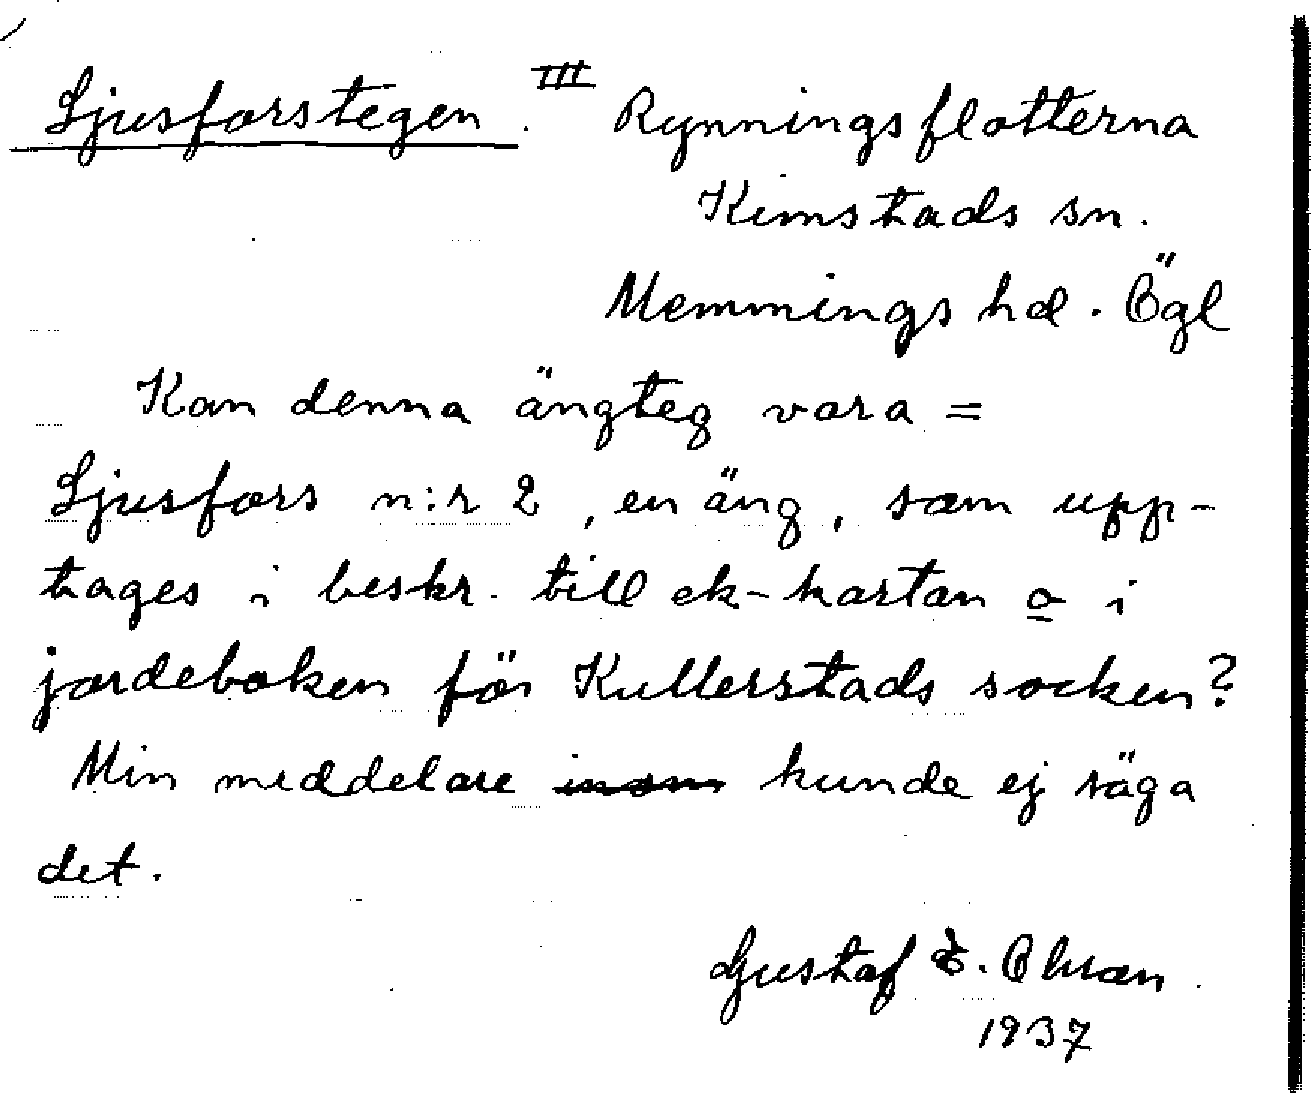 Ljusforstegen. III Rynningsflotterna
Kimstads sn.
Memmings hd. Ögl
Kan denna ängteg vara =
Ljusfors n:r 2, en äng, som upp-
tages i beskr. till ek-kartan o i
jordeboken för Kullerstads socken?
Min meddelare kunde ej säga
det.
Gustaf E. Ohson
1937